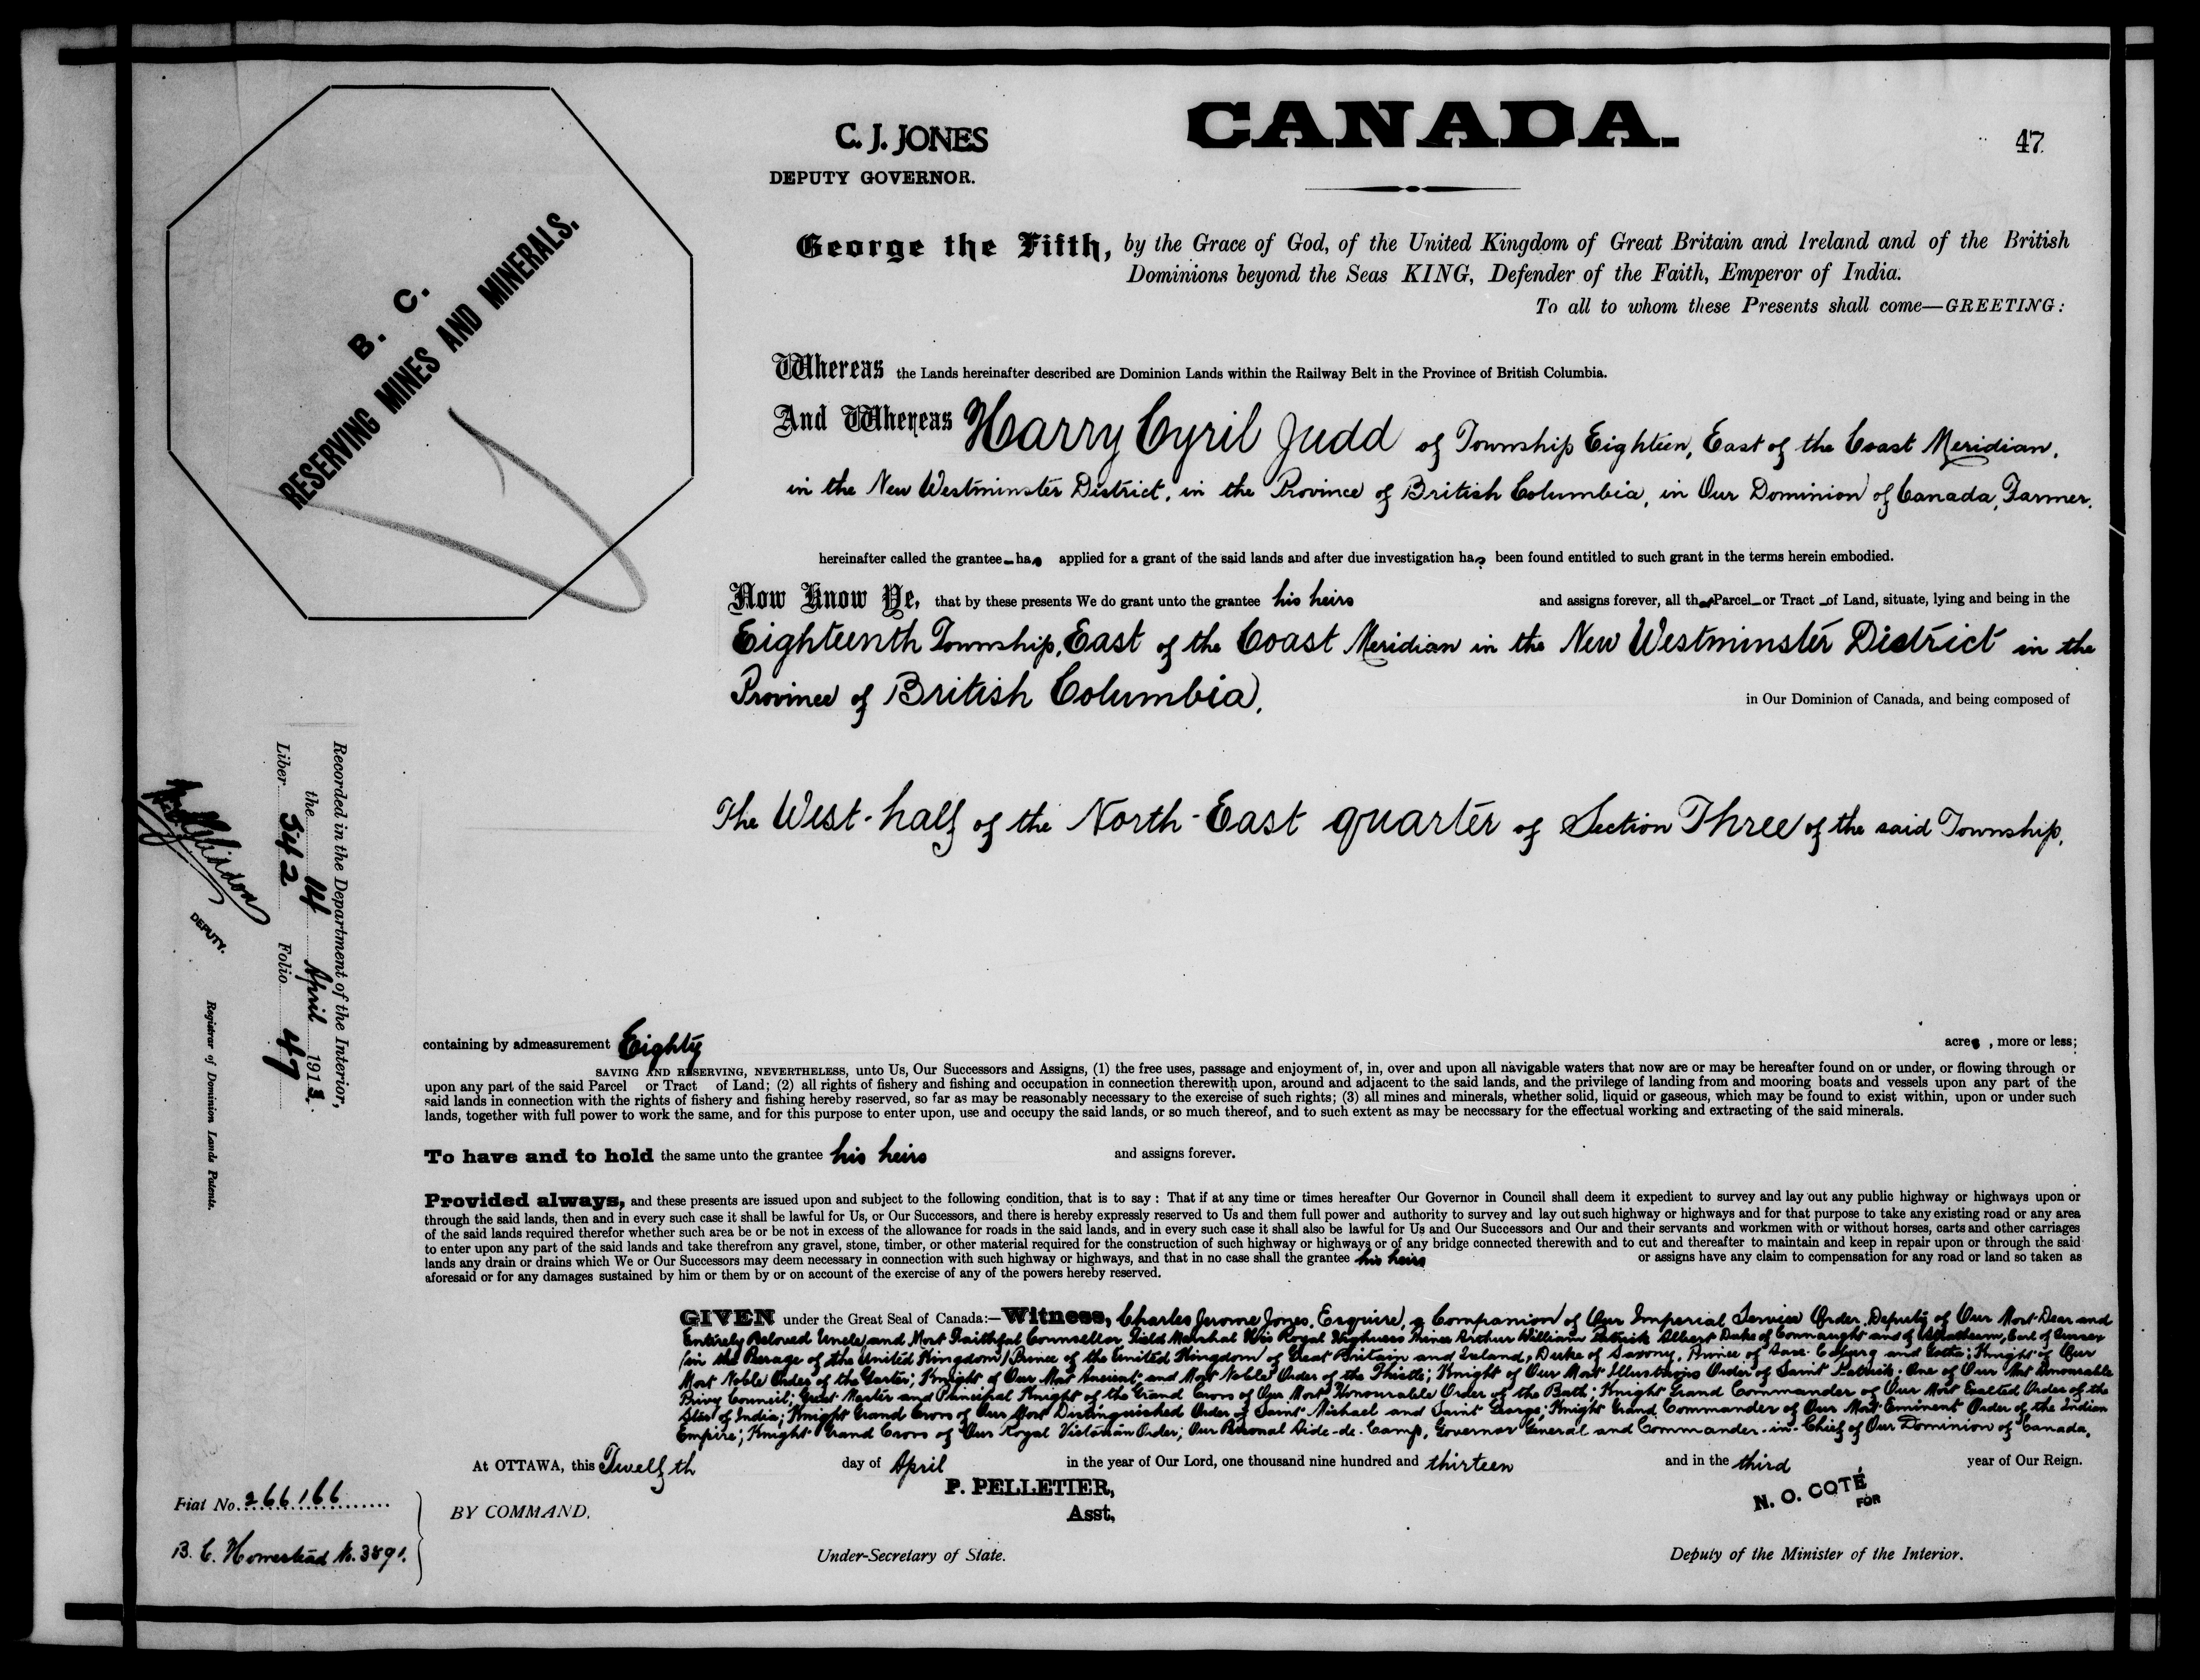 CANADA.
C. J. JONES
DEPUTY GOVERNOR.
47
George the Fifth, by the Grace of God, of the United Kingdom of Great Britain and Ireland and of the British
Dominions beyond the Seas KING, Defender of the Faith, Emperor of India.
To all to whom these Presents shall come—GREETING:
B. C.
RESERVING MINES AND MINERALS.
Whereas the Lands hereinafter described are Dominion Lands within the Railway Belt in the Province of British Columbia.
And Whereas Harry Cyril Judd of Township Eighteen, East of the Coast Meridian,
in the New Westminster District, in the Province of British Columbia, in Our Dominion of Canada, Farmer.
hereinafter called the grantee has applied for a grant of the said lands and after due investigation has been found entitled to such grant in the terms herein embodied.
Now Know Ye, that by these presents We do grant unto the grantee his heirs and assigns forever, all that Parcel or Tract of Land, situate, lying and being in the
Eighteenth Township, East of the Coast Meridian in the New Westminster District in the
Province of British Columbia, in Our Dominion of Canada, and being composed of
The West-half of the North-East quarter of Section Three of the said Township,
Recorded in the Department of the Interior,
the 14 April 1913.
Liber Folio 47
DEPUTY.
Registrar of Dominion Lands Patents.
containing by admeasurement Eighty acres, more or less;
SAVING AND RESERVING, NEVERTHELESS, unto Us, Our Successors and Assigns, (1) the free uses, passage and enjoyment of, in, over and upon all navigable waters that now are or may be hereafter found on or under, or flowing through or
upon any part of the said Parcel or Tract of Land; (2) all rights of fishery and fishing and occupation in connection therewith upon, around and adjacent to the said lands, and the privilege of landing from and mooring boats and vessels upon any part of the
said lands in connection with the rights of fishery and fishing hereby reserved, so far as may be reasonably necessary to the exercise of such rights; (3) all mines and minerals, whether solid, liquid or gaseous, which may be found to exist within, upon or under such
lands, together with full power to work the same, and for this purpose to enter upon, use and occupy the said lands, or so much thereof, and to such extent as may be necssary for the effectual working and extracting of the said minerals.
To have and to hold the same unto the grantee his heirs and assigns forever.
Provided always, and these presents are issued upon and subject to the following condition, that is to say: That if at any time or times hereafter Our Governor in Council shall deem it expedient to survey and lay out any public highway or highways upon or
through the said lands, then and in every such case it shall be lawful for Us, or Our Successors, and there is hereby expressly reserved to Us and them full power and authority to survey and lay out such highway or highways and for that purpose to take any existing road or any area
of the said lands required therefor whether such area be or be not in excess of the allowance for roads in the said lands, and in every such case it shall also be lawful for Us and Our Successors and Our and their servants and workmen with or without horses, carts and other carriages
to enter upon any part of the said lands and take therefrom any gravel, stone, timber, or other material required for the construction of such highway or highways or of any bridge connected therewith and to cut and thereafter to maintain and keep in repair upon or through the said
lands any drain or drains which We or Our Successors may deem necessary in connection with such highway or highways, and that in no case shall the grantee his heirs or assigns have any claim to compensation for any road or land so taken as
aforesaid or for any damages sustained by him or them by or on account of the exercise of any of the powers hereby reserved.
GIVEN under the Great Seal of Canada:—Witness, Charles Jerome Jones, Esquire, a Companion of Our Imperial Service Order, Deputy of Our Most Dear and
Entirely Beloved Uncle and Most Faithful Counsellor Field Marshal His Royal Highness Prince Arthur William Patrick Albert Duke of Connaught and of Strathearn, Earl of Sussex
(in the Peerage of the United Kingdom) Prince of the United Kingdom of Great Britain and Ireland, Duke of Saxony, Prince of Saxe-Coburg and Gotha; Knight of Our
Most Noble Order of the Garter; Knight of Our Most Ancient and Most Noble Order of the Thistle; Knight of Our Most Illustrious Order of Saint Patrick; One of Our Most Honourable
Privy Council; Great Master and Principal Knight of the Grand Cross of Our Most Honourable Order of the Bath; Knight Grand Commander of Our Most Exalted Order of the
Star of India; Knight Grand Cross of Our Most Distinguished Order of Saint Michael and Saint George; Knight Grand Commander of Our Most Eminent Order of the Indian
Empire; Knight Grand Cross of Our Royal Victorian Order; Our Personal Aide-de-Camp, Governor General and Commander-in-Chief of Our Dominion of Canada.
At OTTAWA, this Twelfth day of April in the year of Our Lord, one thousand nine hundred and thirteen and in the third year of Our Reign.
P. PELLETIER,
Asst,
N. O. COTÉ
FOR
Fiat No. 266166
BY COMMAND,
B. C. Homestead No. 3891.
Under-Secretary of State.
Deputy of the Minister of the Interior.